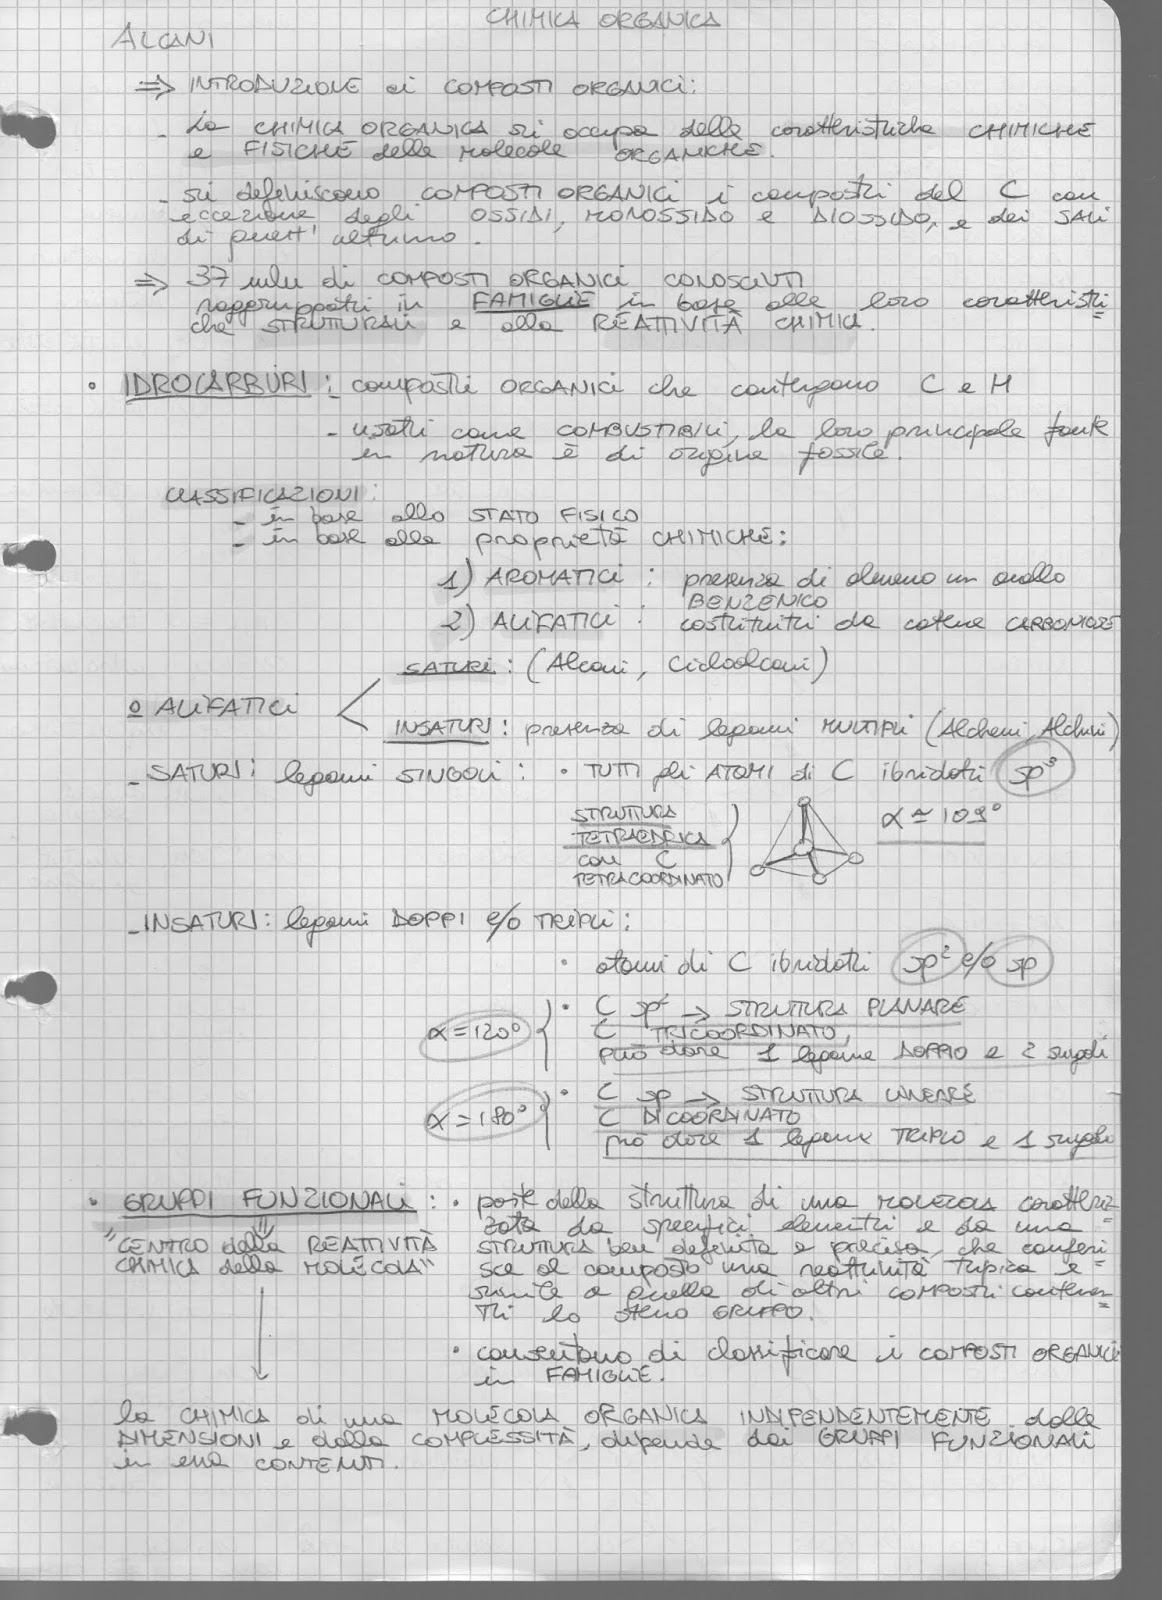 CHIMICA ORGANICA
ALCANI
⇒ INTRODUZIONE ai COMPOSTI ORGANICI:
- La CHIMICA ORGANICA si occupa delle caratteristiche CHIMICHE
e FISICHE delle molecole ORGANICHE.
- si definiscono COMPOSTI ORGANICI i composti del C con
eccezione degli OSSIDI, MONOSSIDO e DIOSSIDO, e dei SALI
di quest'ultimo.
⇒ 37 mln di COMPOSTI ORGANICI CONOSCIUTI
raggruppati in FAMIGLIE in base alle loro caratteristi=
che STRUTTURALI e alla REATTIVITÀ CHIMICA.
• IDROCARBURI: composti ORGANICI che contengono C e H
- usati come COMBUSTIBILI, la loro principale fonte
in natura è di origine fossile.
CLASSIFICAZIONI:
- in base allo STATO FISICO
- in base alle proprietà CHIMICHE:
1) AROMATICI : presenza di almeno un anello
BENZENICO
2) ALIFATICI : costituiti da catene CARBONIOSE
SATURI : (Alcani, Cicloalcani)
o ALIFATICI <
INSATURI : presenza di legami MULTIPLI (Alcheni, Alchini)
- SATURI: legami SINGOLI : • TUTTI gli ATOMI di C ibridati sp³
STRUTTURA
TETRAEDRICA
con C
TETRACOORDINATO
α ≃ 109°
- INSATURI: legami DOPPI e/o TRIPLI:
• atomi di C ibridati sp² e/o sp
α = 120°
• C sp² → STRUTTURA PLANARE
C TRICOORDINATO,
può dare 1 legame DOPPIO e 2 singoli
α = 180°
• C sp → STRUTTURA LINEARE
C DICOORDINATO
può dare 1 legame TRIPLO e 1 singolo
• GRUPPI FUNZIONALI : • parte della struttura di una MOLECOLA caratteriz=
zata da specifici elementi e da una
STRUTTURA ben definita e precisa, che conferi=
sce al composto una reattività tipica e
simile a quella di altri COMPOSTI contenen=
ti lo stesso GRUPPO.
"CENTRO della REATTIVITÀ
CHIMICA della MOLECOLA"
• consentono di classificare i COMPOSTI ORGANICI
in FAMIGLIE.
la CHIMICA di una MOLECOLA ORGANICA INDIPENDENTEMENTE dalle
DIMENSIONI e dalla COMPLESSITÀ, dipende dai GRUPPI FUNZIONALI
in essa CONTENUTI.